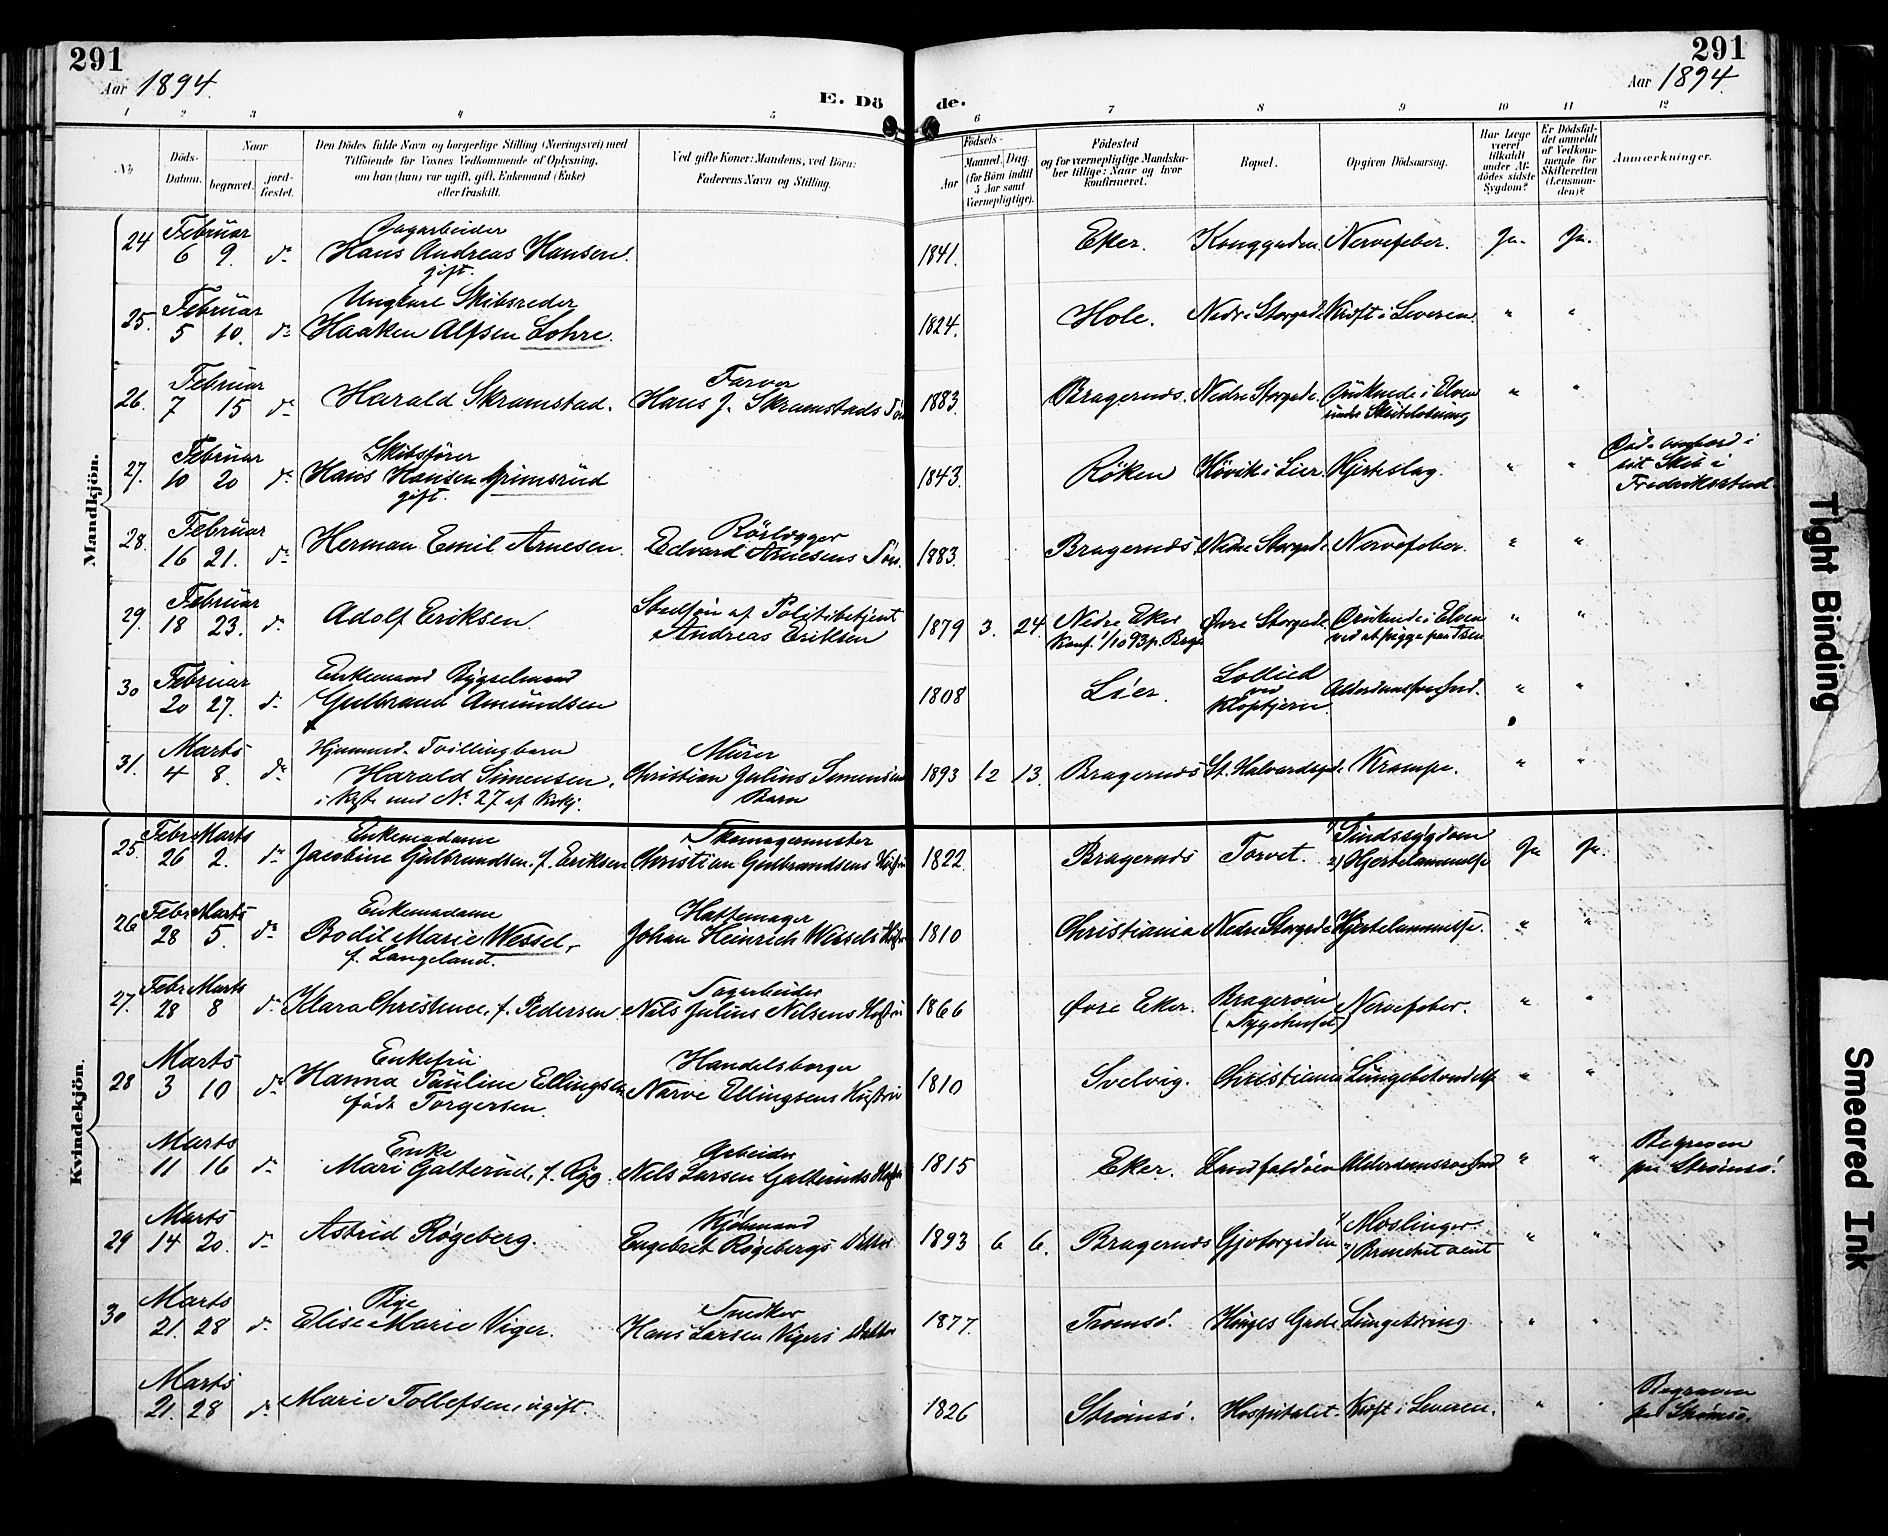 291
Aar 1894.
E. Dö
de.
291
Aar 1894.
1 2 3 4 5 6 7 8 9 10 11 12
No
Döds-Datum.
Naar
begravet.
jord-fæstet.
Den Dödes fulde Navn og borgerlige Stilling (Næringsvei) med
Tilföiende for Voxnes Vedkommende af Oplysning,
om han (hun) var ugift, gift, Enkemand (Enke)
eller fraskilt.
Ved gifte Koner: Mandens, ved Börn:
Faderens Navn og Stilling.
Födsels-
Aar
Maaned. Dag.
(for Börn indtil
5 Aar samt
Værnepligtige).
Födested
og for værnepligtige Mandska-
ber tillige: Naar og hvor
konfirmeret.
Bopæl.
Opgiven Dödsaarsag.
Har Læge
været
tilkaldt
under Af-
dödes sidste
Sygdom?
Er Dödsfal-
det anmeldt
af Vedkom-
mende for
Skifteretten
(Lensman-
den)?
Anmærkninger.
Mandkjön.
24 Februar 6 9. do
Hans Andreas Hansen.
gift.
1841. Eker. Konggaden Nervefeber. Ja. Ja.
25. Februar 5 10. do
Ungkarl Skibsreder
Haaken Alfsen Lohre.
1824. Hole. Nedre Storgade Kræft i Leveren. " "
26. Februar 7 15 do
Harald Skramstad.
Farver
Hans J. Skramstads Sön
1883. Bragernæs. Nedre Storgade. Druknede i Elven
under Skøiteløbning " "
27. Februar 10 20 do
Skibsförer
Hans Hansen Grimsrud
gift.
1843. Röken Hövik i Lier Hjerteslag. " "
Död ombord i
sit Skib i
Fredriksstad.
28. Februar 16 21. do
Herman Emil Arnesen.
Rörlægger
Edvard Arnesens Sön.
1883. Bragernæs Nedre Storgade Nervefeber. " "
29. Februar 18 23. do
Adolf Eriksen.
Stedsön af Politibetjent
Andreas Eriksen
1879 3. 24. Nedre Eker
Konf. 1/10 93 p. Brag.
Övre Storgade Druknede i Elven
" "
30 Februar 20 27. do
Enkemand Bygselmand
Gulbrand Amundsen
1808 Lier. Lollied
ved
Kloptjern.
Alderdomssvaghed. " "
31. Marts 4 8. do
Hjemmed. Tvillingbarn
Harald Simensen.
i Kgt. med No 27 af Kvkj.
Murer
Christian Julius Simensens
Barn
1893 12 13. Bragernæs St. Halvardsgd. Krampe. " "
Kvindekjön.
25. Febr 26 Marts 2. do
Enkemadame
Jacobine Gulbrandsen, f. Eriksen
Skomagermester
Christian Gulbrandsens Hustru
1822. Bragernæs Torvet. 1) Sindssygdom
2) Hjertelammelse Ja Ja.
26 Febr 28 Marts 5. do
Enkemadame
Bodil Marie Wessel,
f. Langeland.
Hattemager
Johan Heinrich Wessels Hustru
1810 Christiania Nedre Storgade Hjertelammelse. " "
27. Febr 28 Marts 8 do
Klara Christence, f. Pedersen.
Sagarbeider
Nils Julius Nilsens Hustru
1866 Övre Eker. Bragerøen
(Sygehuset)
Nervefeber. " "
28 Marts 3 10 do
Enkefru
Hanna Pauline Ellingsen
född Torgersen.
Handelsborger
Narve Ellingsens Hustru
1810 Svelvig. Christiania Lungebetændelse " "
Marts 11 16 do
Enke
Mari Galterud, f. Ryg.
Arbeider
Nils Larsen Galteruds Hustru
1815 Eker. Landfaldöen Alderdomssvaghed " "
Begraven
paa Strömsö.
29 Marts 14 20. do
Astrid Røgeberg.
Kjöbmand
Engebret Røgebergs Datter
1893 6 6. Bragernæs Gjetergaden 1) Mæslinger.
2) Bronchit acut " "
30 Marts 21. 28 do
Pige
Elise Marie Viger.
Snedker
Hans Larsen Vigers Datter
1877. Tromsö. Hauges Gade Lungetæring " "
Marts 21. 28 do
Marie Tollefsen, ugift.
1826 Strömsö. Hospitalet. Kræft i Leveren. " "
Begraven
paa Strömsö.
Tight Binding
Smeared Ink